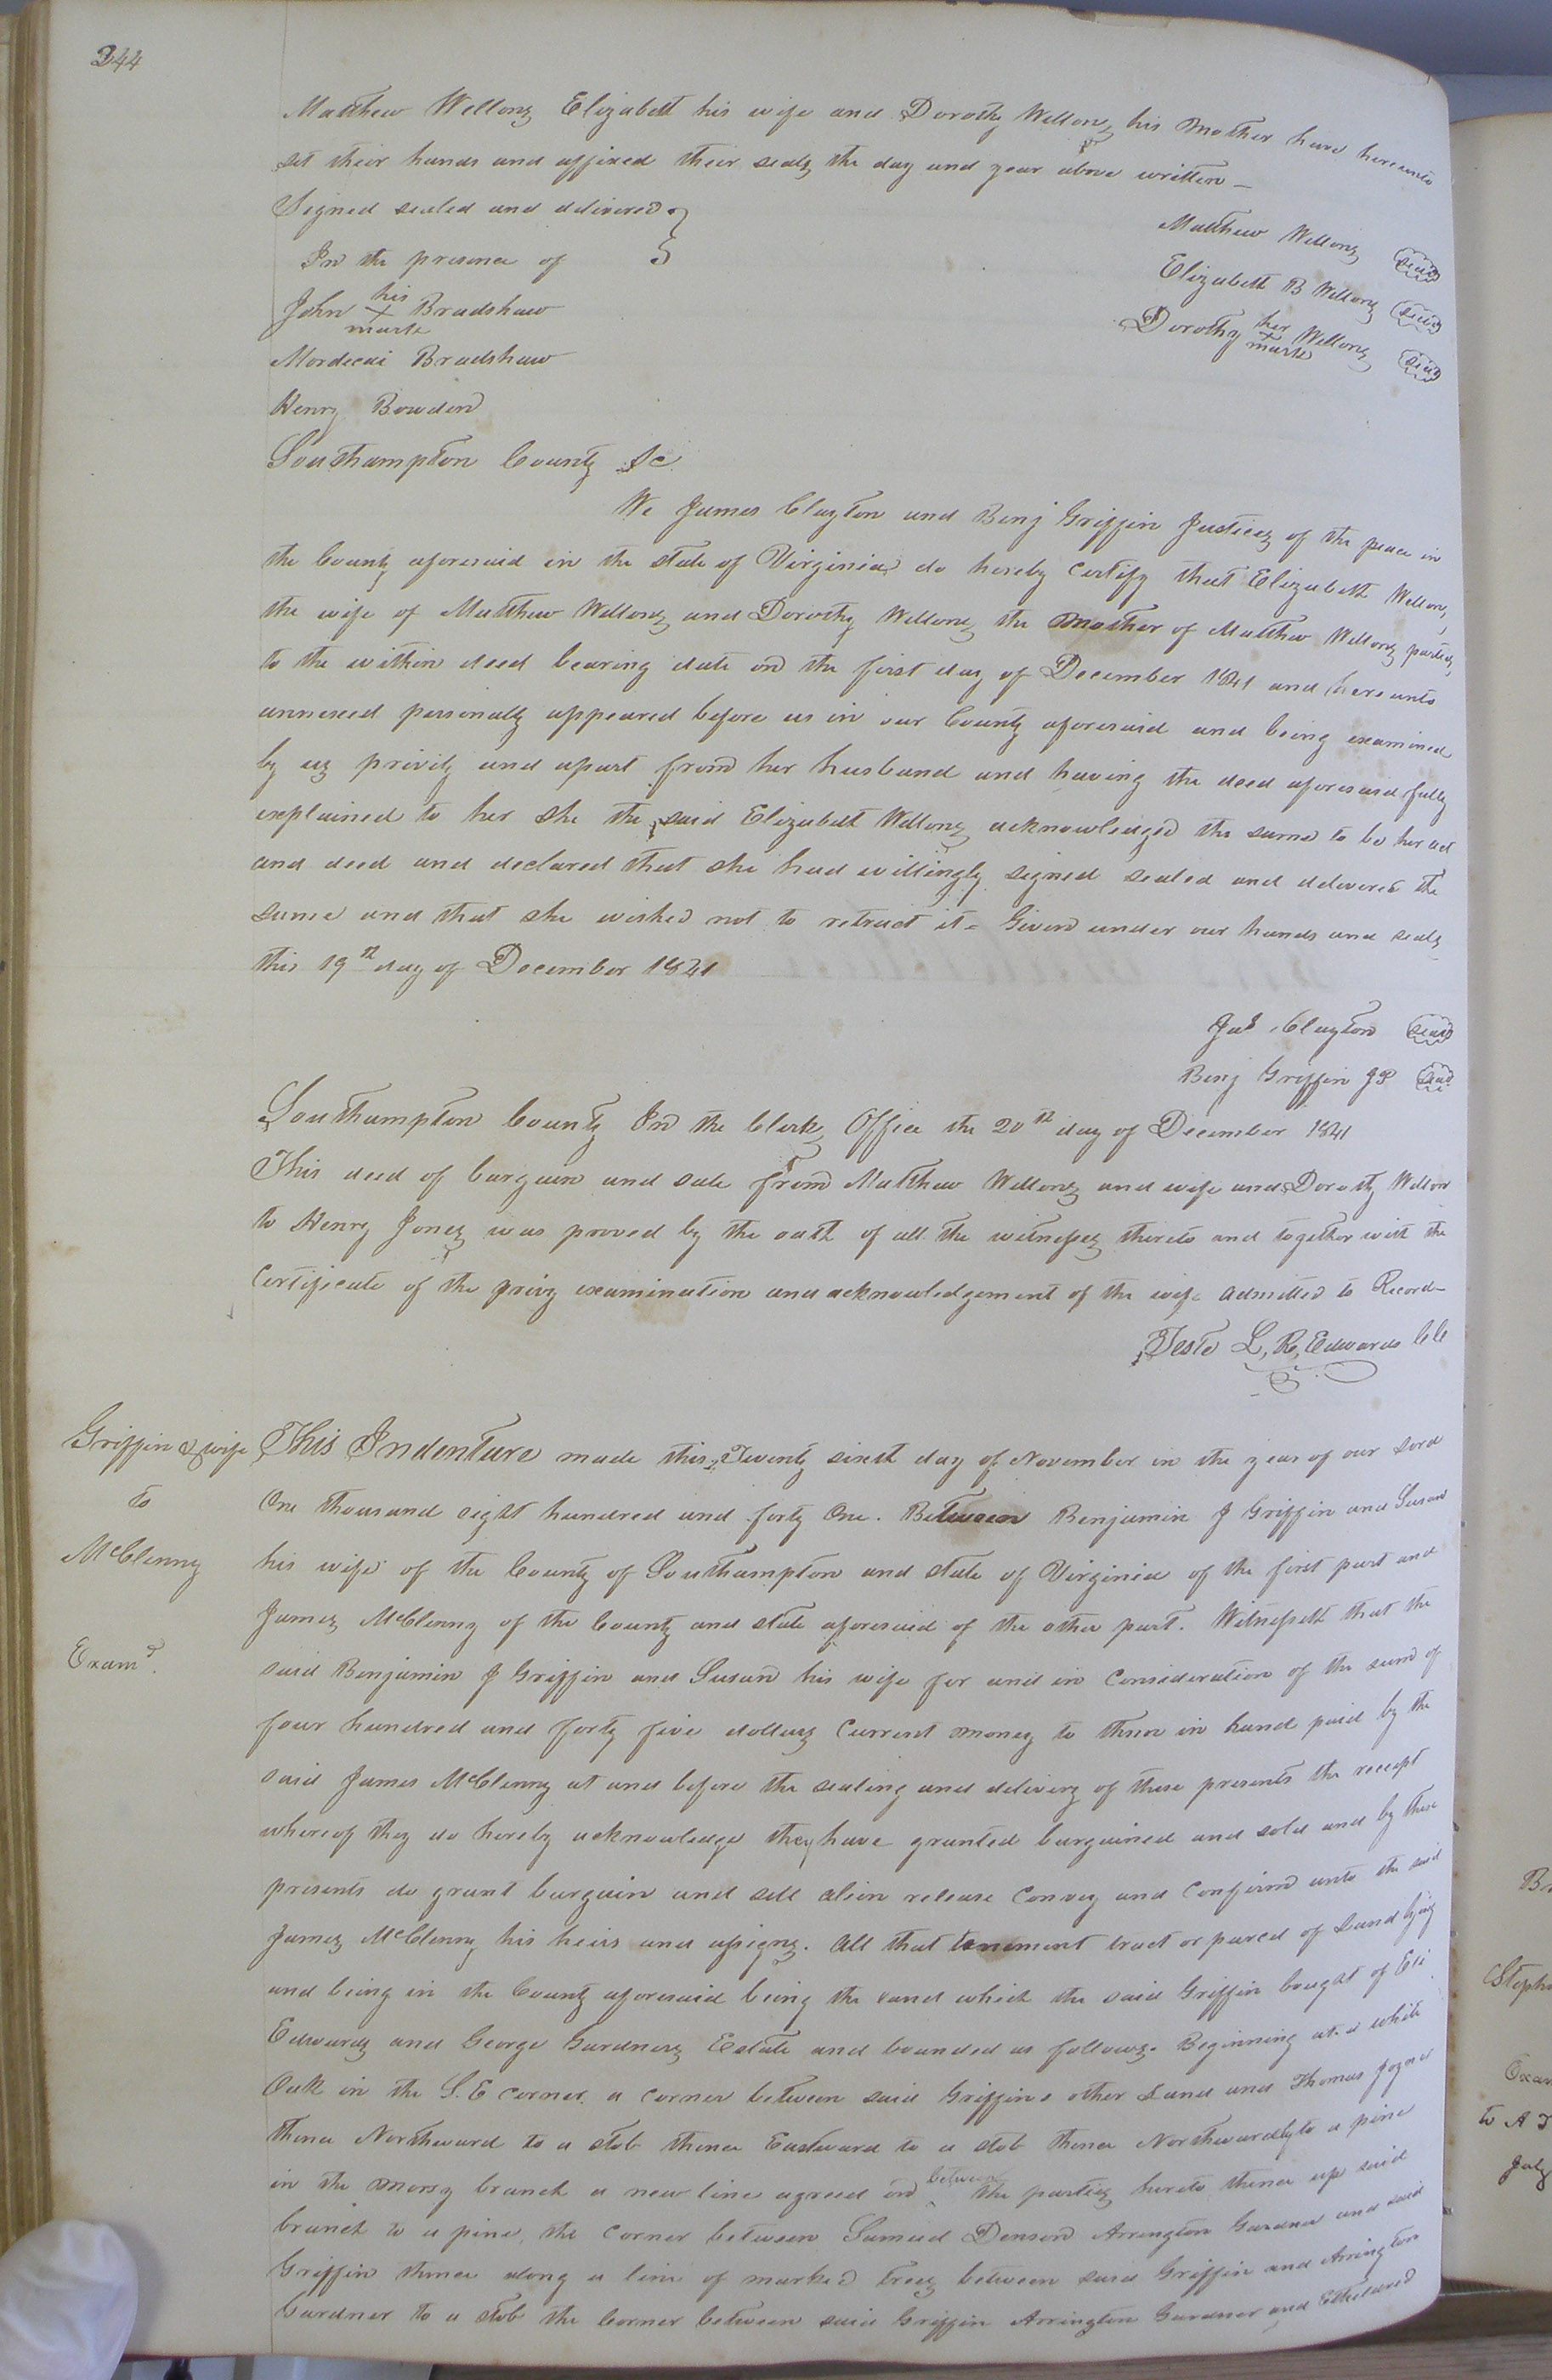 244
Matthew Wellons Elizabeth his wife and Dorothy Wellons his Mother have hereunto
set their hands and affixed their seals the day and year above written —
Signed sealed and delivered }
In the presence of }
Matthew Wellons seal
Elizabeth B Wellons seal
Dorothy her + mark Wellons seal
John his + mark Bradshaw
Mordecai Bradshaw
Henry Bowden
Southampton County Sc
We James Clayton and Benj Griffin Justices of the peace in
the County aforesaid in the state of Virginia do hereby certify that Elizabeth Wellons
the wife of Matthew Wellons and Dorothy Wellons the Mother of Matthew Wellons parties
to the within deed bearing date on the first day of December 1841 and hereunto
annexed personally appeared before us in our County aforesaid and being examined
by us privily and apart from her husband and having the deed aforesaid fully
explained to her she the said Elizabeth Wellons acknowledged the same to be her act
and deed and declared that she had willingly signed sealed and delivered the
same and that she wished not to retract it = Given under our hands and seals
this 19th day of December 1841
Jas Clayton seal
Benj Griffin JP seal
Southampton County In the Clerks Office the 20th day of December 1841
This deed of bargain and sale from Matthew Wellons and wife and Dorothy Wellons
to Henry Jones was proved by the oath of all the witnesses thereto and together with the
Certificate of the privy examination and acknowledgement of the wife admitted to Record —
Teste L, R, Edwards CC
Griffin & wife
to
McClenny
Examd.
This Indenture made this Twenty sixth day of November in the year of our Lord
One thousand eight hundred and forty One. Between Benjamin J Griffin and Susan
his wife of the County of Southampton and state of Virginia of the first part and
James McClenny of the County and state aforesaid of the other part. Witnesseth that the
said Benjamin J Griffin and Susan his wife for and in Consideration of the sum of
four hundred and forty five dollars Current money to them in hand paid by the
said James McClenny at and before the sealing and delivery of these presents the receipt
whereof they do hereby acknowledge they have granted bargained and sold and by these
presents do grant bargain and sell alien release Convey and Confirm unto the said
James McClenny his heirs and assigns. All that tenement tract or parcel of Land lying
and being in the County aforesaid being the Land which the said Griffin bought of Eli
Edwards and George Gardners Estate and bounded as follows. Beginning at a white
Oak in the S. E corner a corner between said Griffins other Land and Thomas Joyner
thence Northward to a stob thence Eastward to a stob thence Northwardly to a pine
in the mossy branch a new line agreed on between the parties hereto thence up said
branch to a pine, the Corner between Samuel Denson Arrington Gardner and said
Griffin thence along a line of marked trees between said Griffin and Arrington
Gardner to a stob the Corner between said Griffin Arrington Gardner and Etheldred
Steph
to A
July